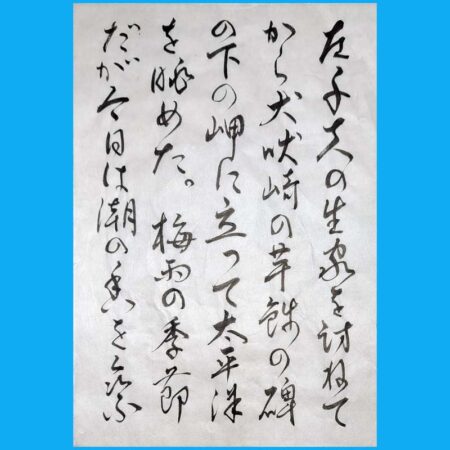 左千夫の生家を訪ねて
から犬吠崎の芋銭の碑
の下の岬に立って太平洋
を眺めた。梅雨の季節
だが今日は潮の香を含